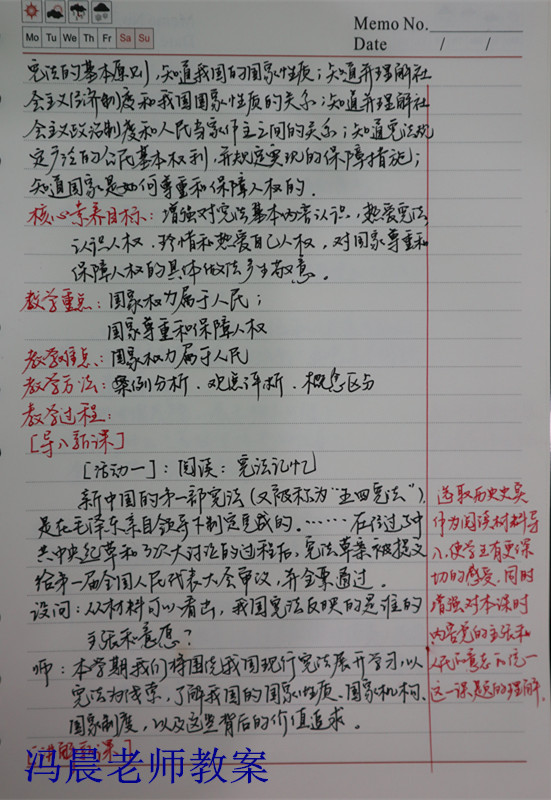 Memo No.
Mo Tu We Th Fr Sa Su
Date / /
宪法的基本原则，知道我国的国家性质；知道并理解社
会主义经济制度和我国国家性质的关系；知道并理解社
会主义政治制度和人民当家作主之间的关系；知道宪法规
定广泛的公民基本权利，并规定实现的保障措施；
知道国家是如何尊重和保障人权的．
核心素养目标：增强对宪法基本内容认识，热爱宪法，
认识人权，珍惜和热爱自己人权，对国家尊重和
保障人权的具体做法产生敬意。
教学重点：国家权力属于人民；
国家尊重和保障人权
教学难点：国家权力属于人民
教学方法：案例分析．观点评析．概念区分
教学过程：
［导入新课］
［活动一］：阅读：宪法记忆
新中国的第一部宪法（又被称为“五四宪法”），
是在毛泽东亲自领导下制定完成的．……在经过了中
共中央起草和3次大讨论的过程后，宪法草案被提交
给第一届全国人民代表大会审议，并全票通过．
设问：从材料可以看出，我国宪法反映的是谁的
主张和意愿？
师：本学期我们将围绕我国现行宪法展开学习，以
宪法为线索，了解我国的国家性质、国家机构、
国家制度，以及这些背后的价值追求．
［讲解新课］
选取历史史实
作为阅读材料导
入，使学生有更深
切的感受，同时
增强对本课时
内容党的主张和
人民意志的统一
这一课题的理解．
冯晨老师教案